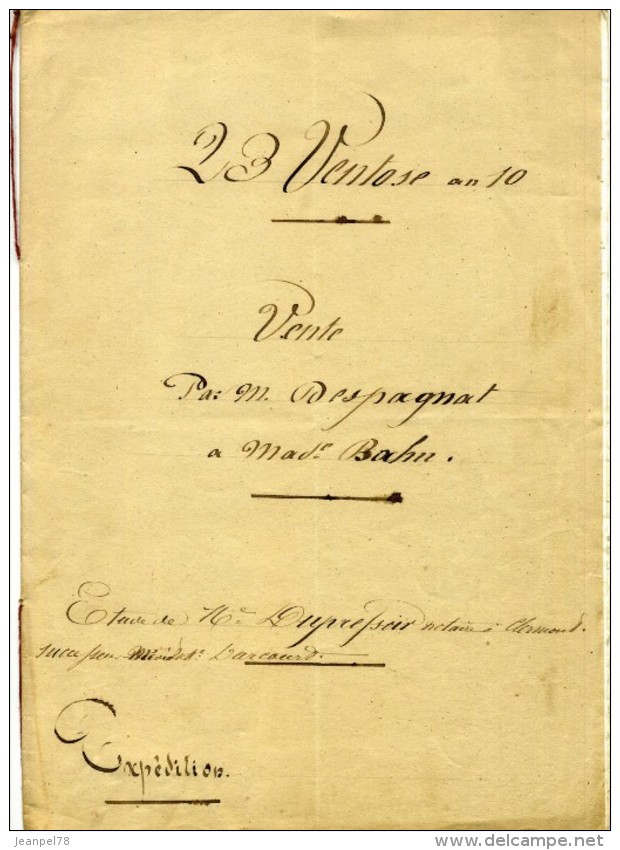 23 Ventose an 10
Vente
Par M. Despagnat
a Made. Bahu.
Etude de Me. Dupressoir notaire à Clermont.
successeur de Me. Darcourd.
Expédition.
jeanpel78
delcampe.net